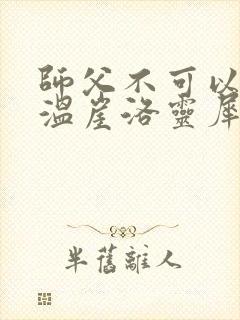 師父不可以
溫崖洛靈犀
半舊離人